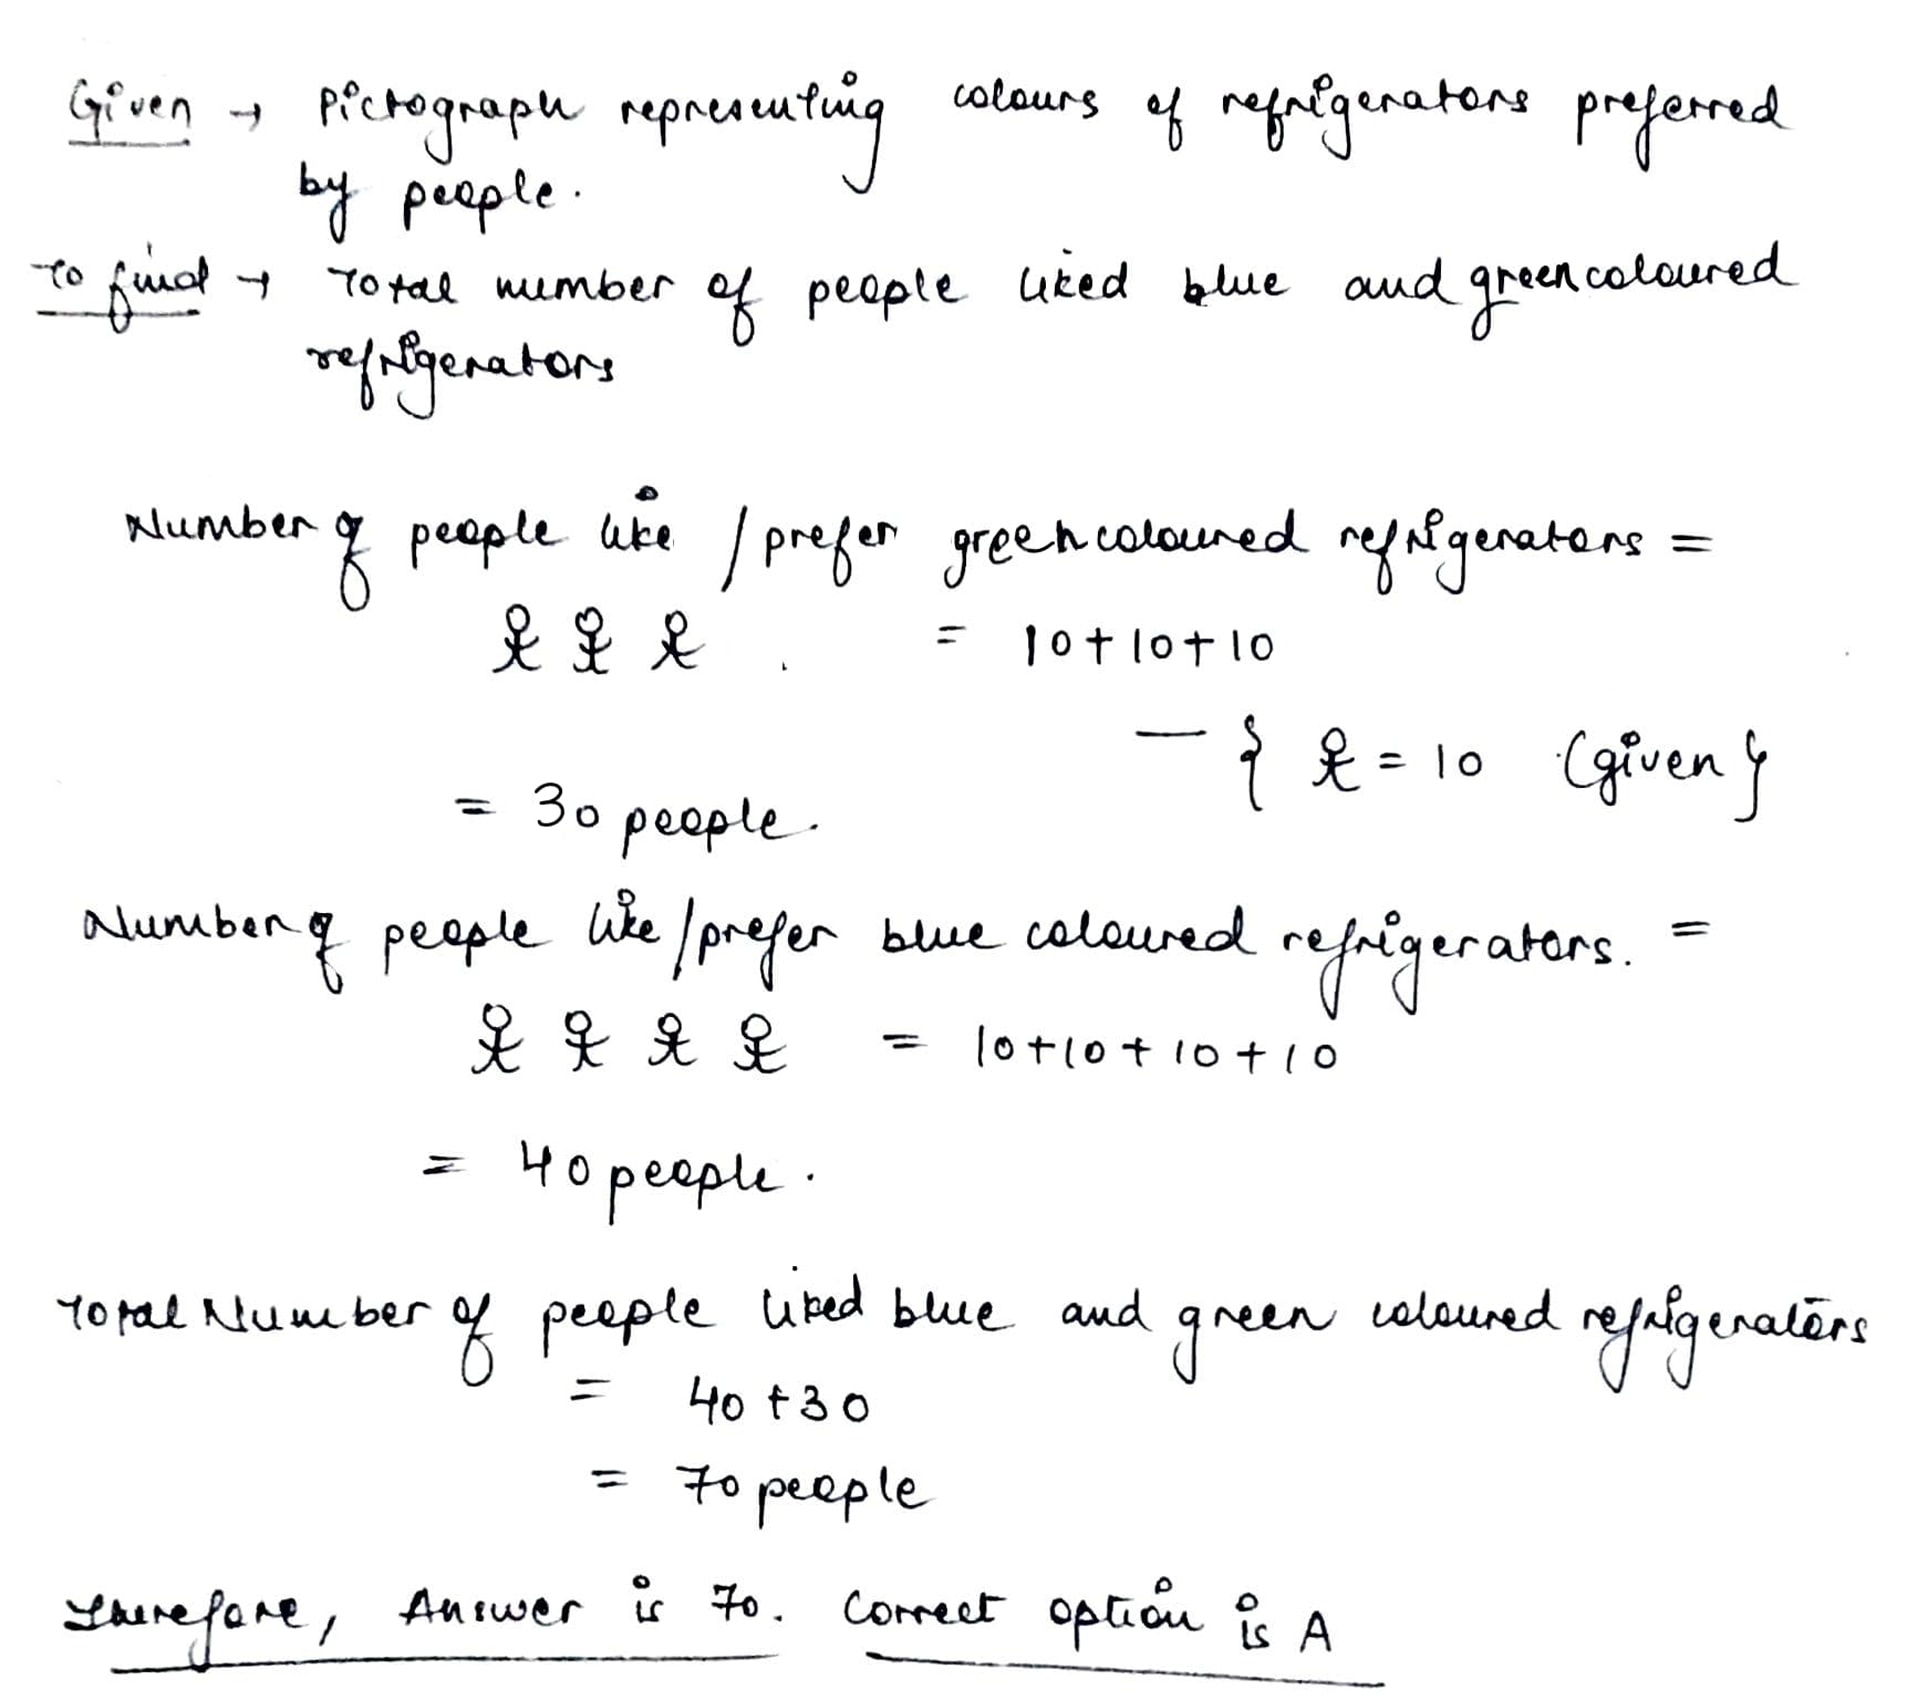 Given → Pictograph representing colours of refrigerators preferred
by people.
To find → Total number of people liked blue and green coloured
refrigerators
Number of people like / prefer green coloured refrigerators =
= 10+10+10
— { = 10 (given }
= 30 people.
Number of people like /prefer blue coloured refrigerators. =
= 10+10+10+10
= 40 people.
Total Number of people liked blue and green coloured refrigerators
= 40+30
= 70 people
Therefore, Answer is 70. Correct option is A